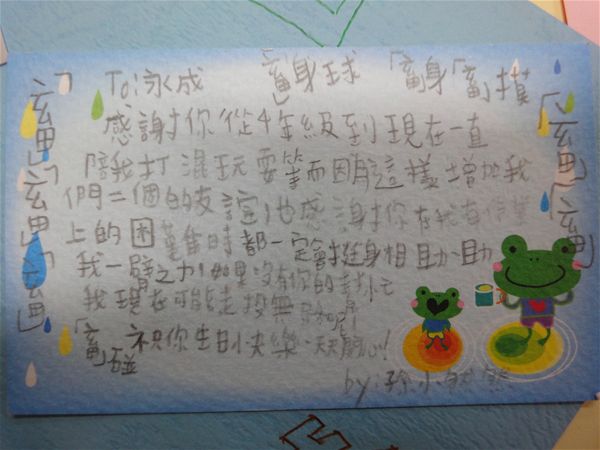 To:泳成
「畜」身球 「畜身「畜」摸
感謝你從4年級到現在一直
陪我打混玩耍等而因為這樣增加我
們二個的友誼也感謝你在我有作業
上的困難時都一定會挺身相助助
我一臂之力如果沒有你的幫忙
我現在可能走投無路呢!
「畜」碰 祝你生日快樂、天天開心!
by: